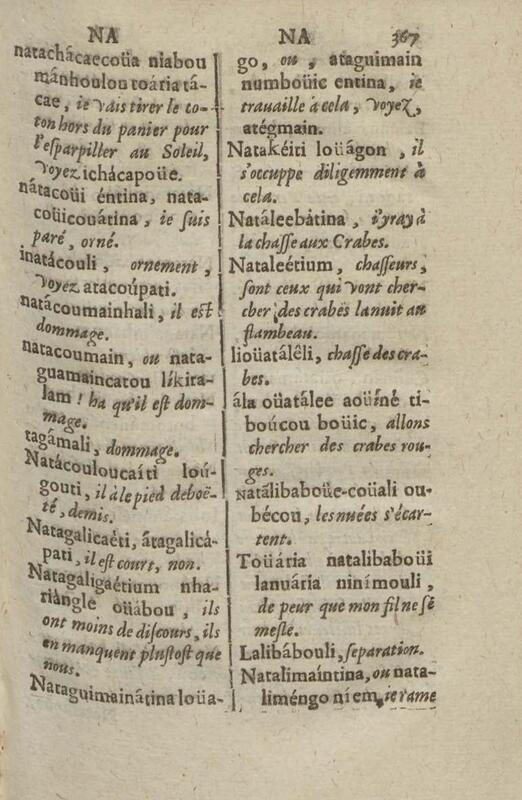 NA
natachácaecoüa niabou
mánhoulou toária tá-
cae, ie vais tirer le co-
ton hors du panier pour
l'esparpiller au Soleil,
voyez ichácapoüe.
nátacoüi éntina, nata-
coüicouátina, ie suis
paré, orné.
inatácouli, ornement,
voyez atacoúpati.
natácoumainhali, il est
dommage.
natacoumain, ou nata-
guamaincatou líkira-
lam ! ha qu'il est dom-
mage.
tagámali, dommage.
Natácouloucaíti loú-
gouti, il à le pied deboë-
té, demis.
Natagalicaéti, átagalicá-
pati, il est court, non.
Natagaligaétium nha-
riàngle oüábou, ils
ont moins de discours, ils
en manquent plustost que
nous.
Nataguimainátina loüa-
NA 367
go, ou, ataguimain
numboüic entina, ie
trauaille à cela, voyez,
atégmain.
Natakéiti loüágon, il
s'occuppe diligemment à
cela.
Natáleebàtina, i'yray à
la chasse aux Crabes.
Nataleétium, chasseurs,
sont ceux qui vont cher-
cher des crabes la nuit au
flambeau.
lioüatálêli, chasse des cra-
bes.
ála oüatálee aoüíné ti-
boúcou boüic, allons
chercher des crabes rou-
ges.
Natálibaboüe-coüali ou-
bécou, les nuées s'écar-
tent.
Toüária natalibaboüi
lanuária ninímouli,
de peur que mon fil ne se
mesle.
Lalibábouli, separation.
Natalimaíntina, ou nata-
liméngo níem, ie rame